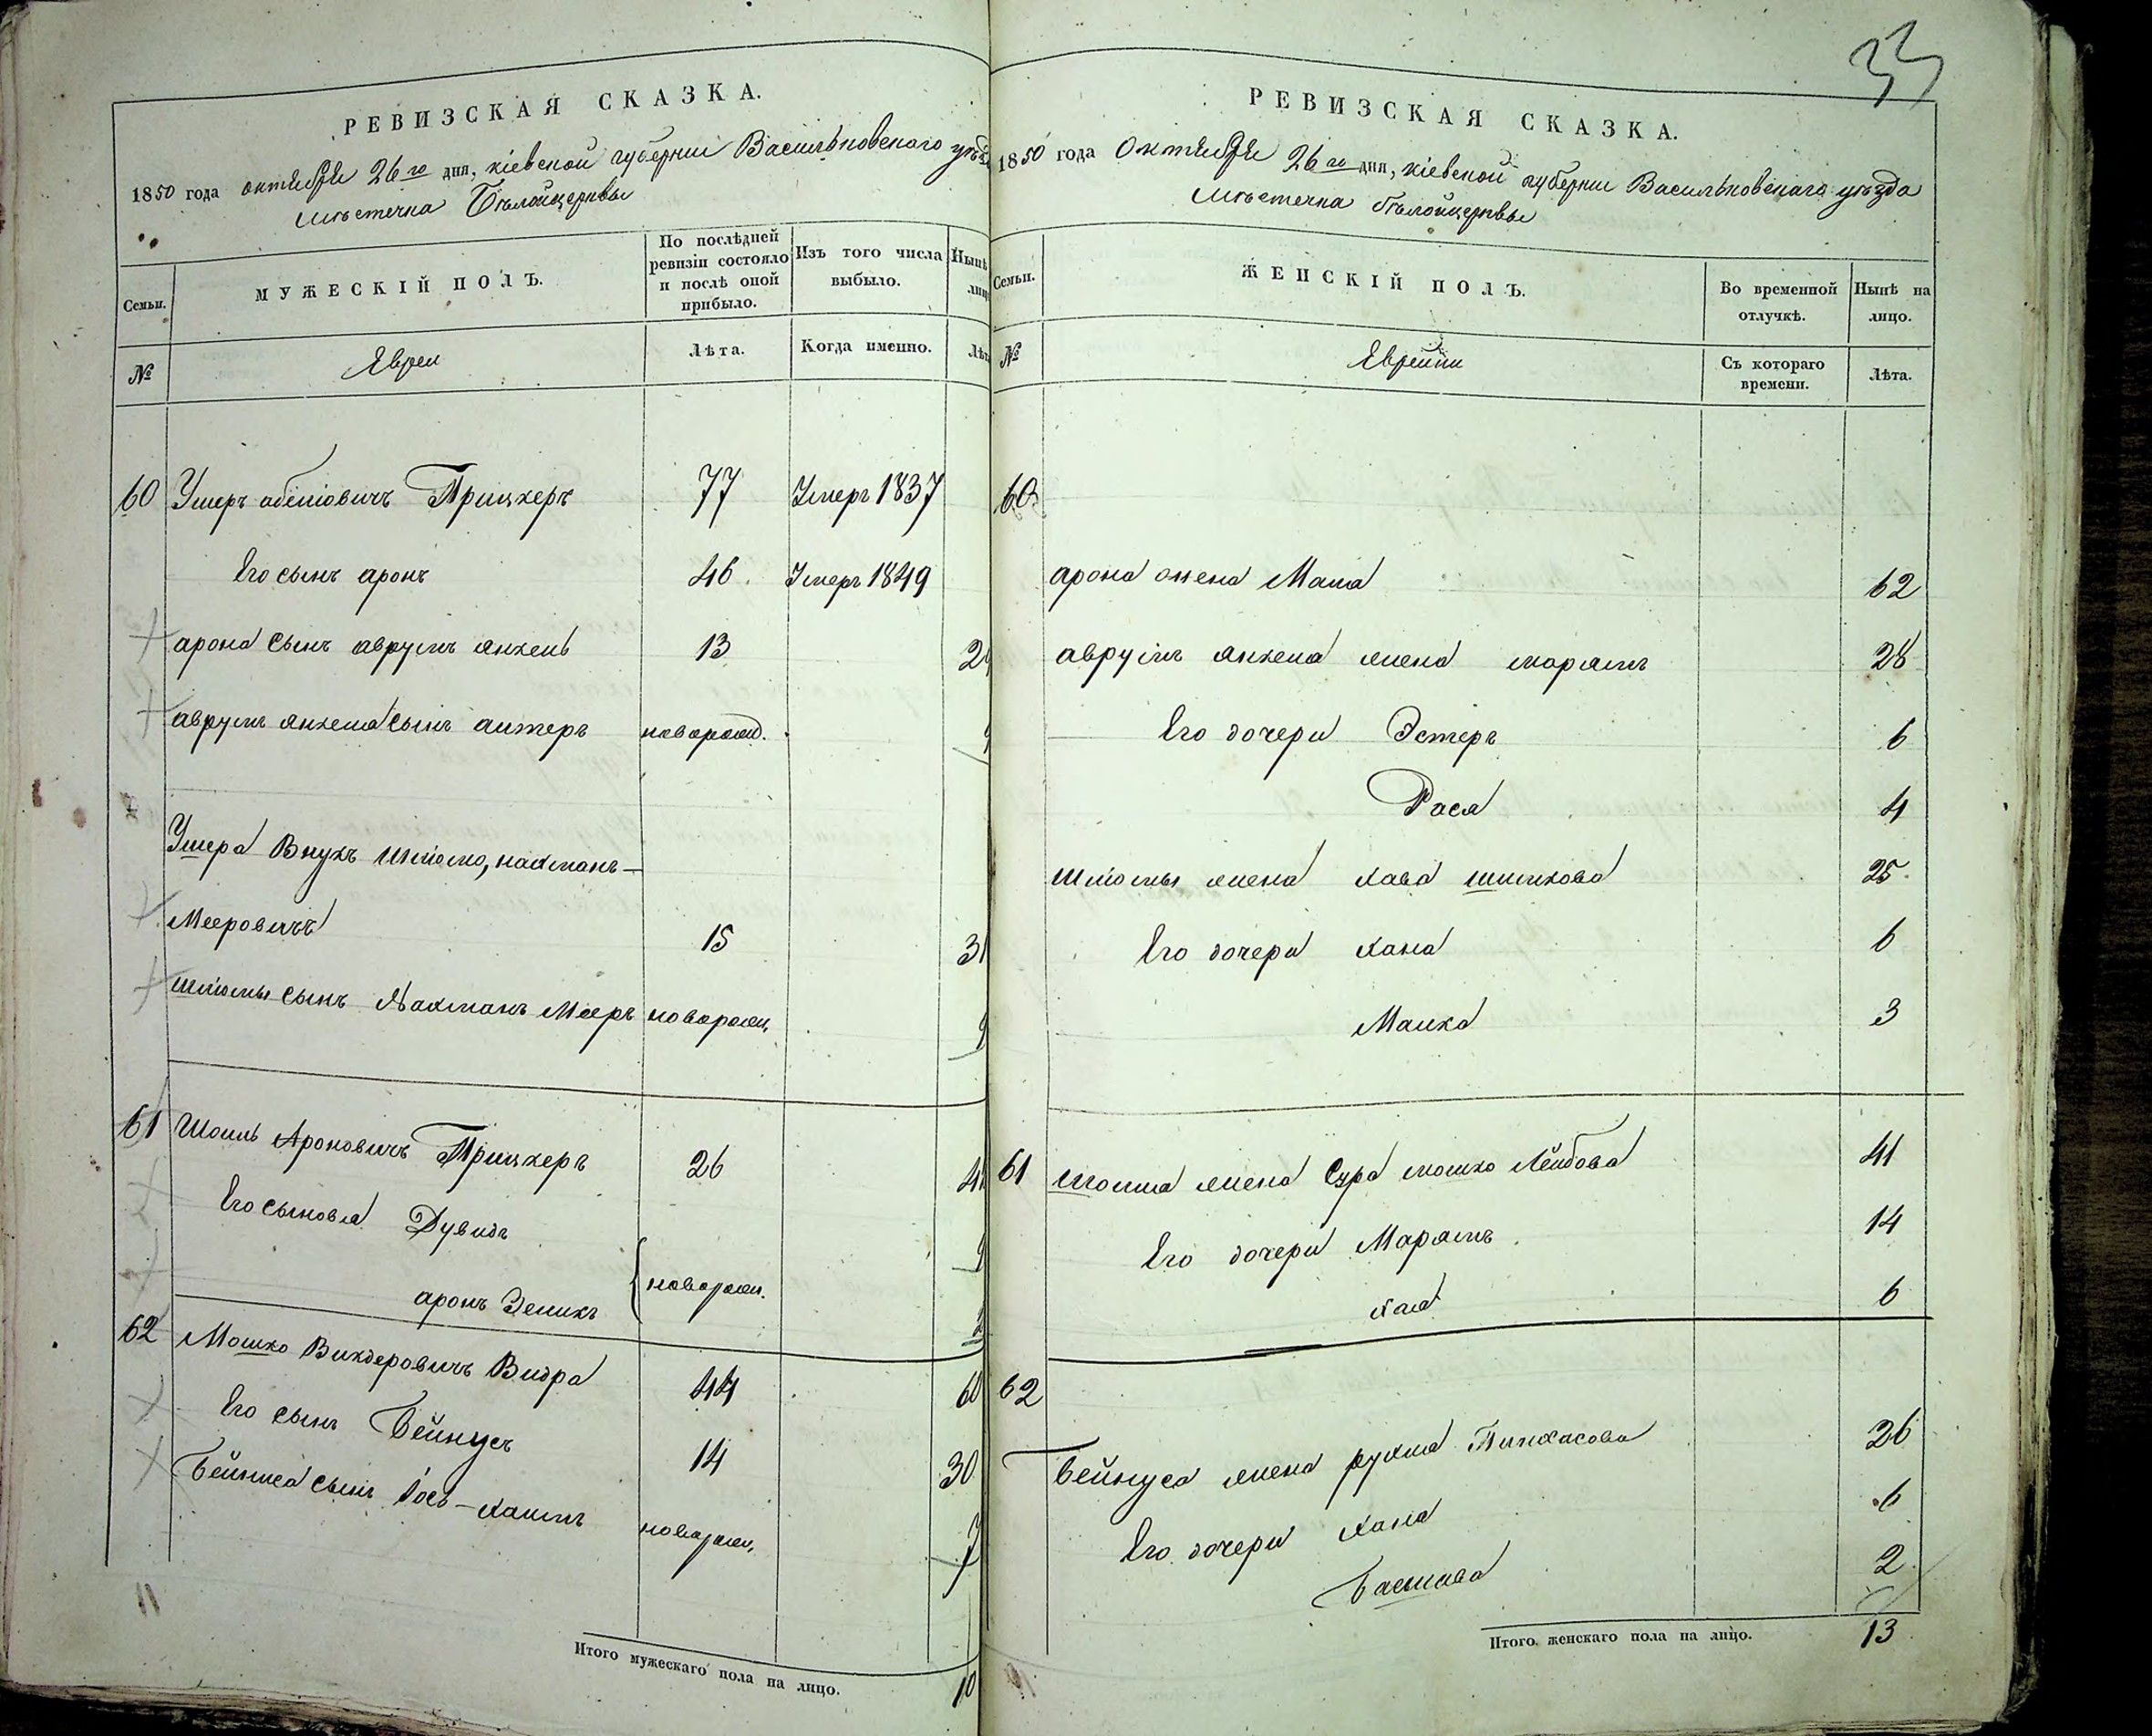 33
РЕВИЗСКАЯ СКАЗКА.
1850 года октября 26го дня, кіевской губерніи Васильковского уѣзда
мѣстечка Бѣлойцеркви
Семьи.
МУЖЕСКІЙ ПОЛЪ.
По послѣдней ревизіи состояло и послѣ оной прибыло.
Изъ того числа выбыло.
Нынѣ
лицо
№
Евреи
Лѣта.
Когда именно.
Лѣта
60 Ушеръ Прицкеръ 77 Умеръ 1837
Его сынъ аронъ 46. Умеръ 1849
арона сынъ аврумъ янкель 13
аврумъ янкеля сынъ алтеръ новорожд.
Ушера Внукъ шлiомо, нахманъ –
Мееровичъ 15 31
шлiомы сынъ Нахманъ Мееръ новорож.
61 Шоиль Ароновичъ Прицкеръ 26 41
Его сыновья Дувидъ
аронъ Зеликъ новорож.
62 Мошко Викдеровичъ Видра 44 60
Его сынъ Бейнусъ 14 30
Бейниса сынъ Iось–хаимъ новорож. 7
11
Итого мужескаго пола на лицо. 10
РЕВИЗСКАЯ СКАЗКА.
1850 года Октября 26го дня, кіевской губерніи Васильковскаго уѣзда
мѣстечка бѣлойцеркви
Семьи.
ЖЕНСКІЙ ПОЛЪ.
Во временной отлучкѣ.
Нынѣ на лицо.
№
Еврейки
Съ котораго времени.
Лѣта.
60
арона жена Маля 62
аврумъ янкеля жена марямъ 28
Его дочери Эстеръ 6
Рася 4
шлiомы жена хава шимхова 25.
Его дочери хана 6
Малка 3
61 шоиля жена Сура мошко Лейбова 41
Его дочери Марямъ 14
хая 6
62
Бейнуса жена рухля Пинхасова 26
Его дочери хана 6
Басшева 2
Итого женскаго пола на лицо. 13